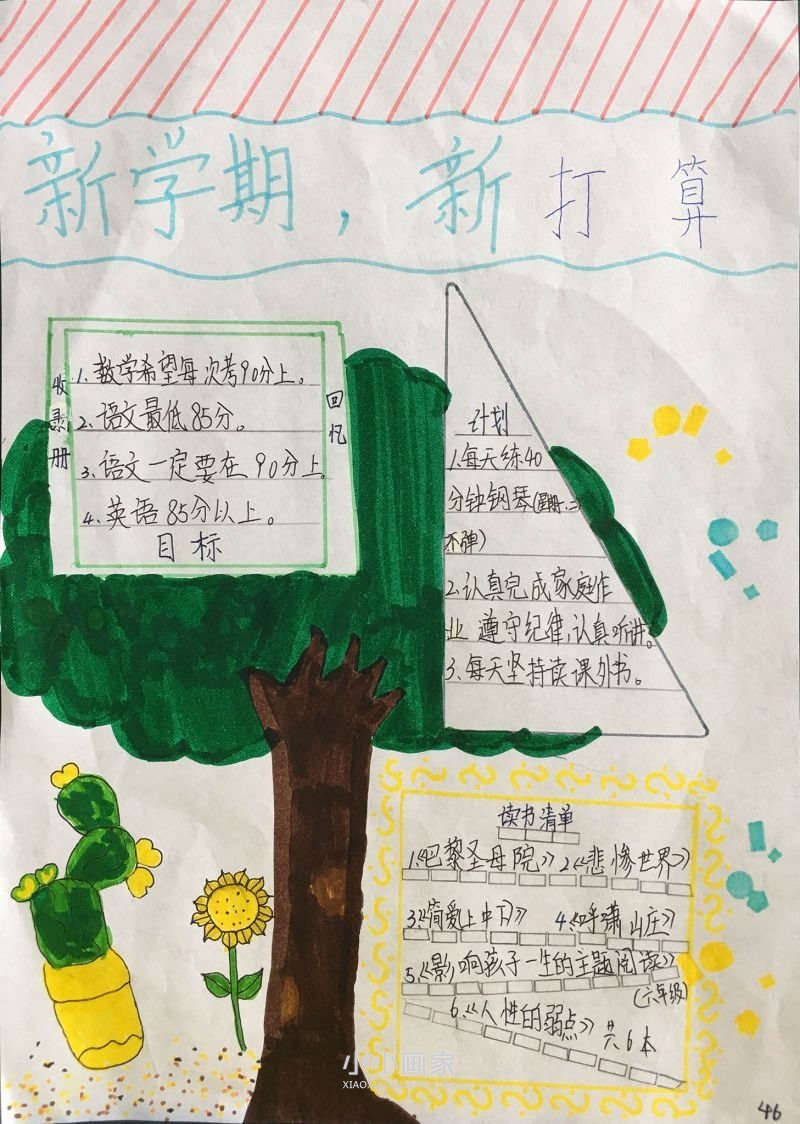 新学期，新打算
收录册
1、数学希望每次考90分上。
2、语文最低85分。
3、语文一定要在90分上。
4、英语85分以上。
目标
回忆
计划
1.每天练40
分钟钢琴(
不弹)
2.认真完成家庭作
业 遵守纪律,认真听讲。
3、每天坚持读课外书。
读书清单
1.《巴黎圣母院》 2.《悲惨世界》
3.《简爱上中下》 4.《呼啸山庄》
5.《影响孩子一生的主题阅读》
(六年级)
6.《人性的弱点》 共6本
小小画家
46